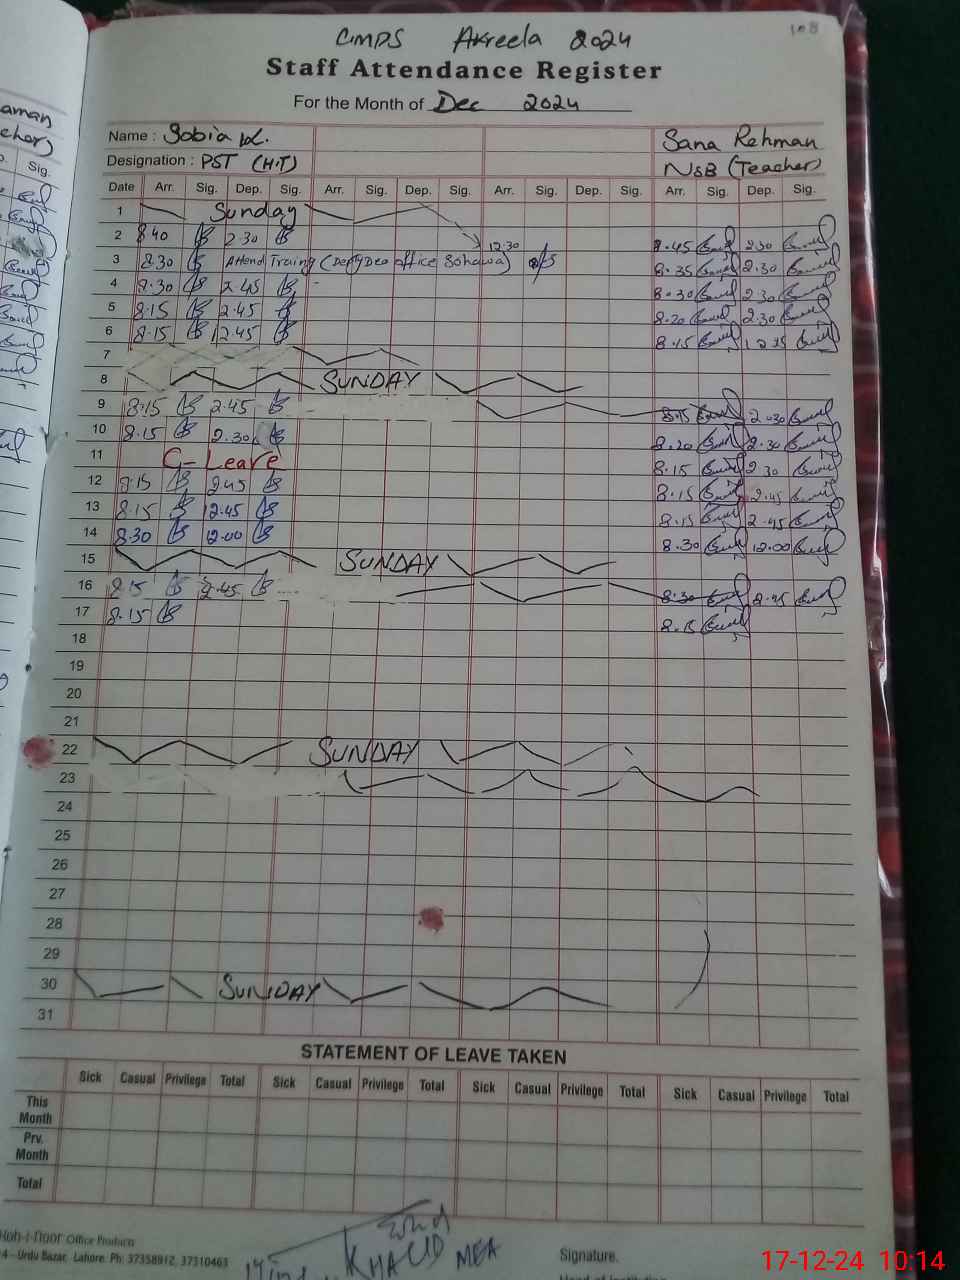 108
GMPS Akreela 2024
Staff Attendance Register
For the Month of Dec 2024
aman
Name : Sobia Sana Rehman
Designation : PST (H.T) NSB (Teacher)
Sig.
Date Arr. Sig. Dep. Sig. Arr. Sig. Dep. Sig. Arr. Sig. Dep. Sig. Arr. Sig. Dep. Sig.
1 Sunday
2 8.40 2.30 12.30 8.45 2.30
3 8.30 Attend Traing (Depty Deo office Sohawa) 8.35 2.30
4 8.30 2.45 8.30 2.30
5 8.15 2.45 8.20 2.30
6 8.15 2.45 8.15
7
8 SUNDAY
9 8.15 2.45 8.15 2.30
10 8.15 2.30 8.20 2.30
11 C- Leave 8.15 2.30
12 8.15 2.45 8.15 2.45
13 8.15 12.45 8.15 2.45
14 8.30 12.00 8.30 12.00
15 SUNDAY
16 8.15 2.45 8.30 2.45
17 8.15 8.15
18
19
20
21
22 SUNDAY
23
24
25
26
27
28
29
30 SUNDAY
31
STATEMENT OF LEAVE TAKEN
Sick Casual Privilege Total Sick Casual Privilege Total Sick Casual Privilege Total Sick Casual Privilege Total
This Month
Prv. Month
Total
Office Products
Urdu Bazar, Lahore. Ph: 37358912, 37310463
KHALID MEA
Signature.
17-12-24 10:14